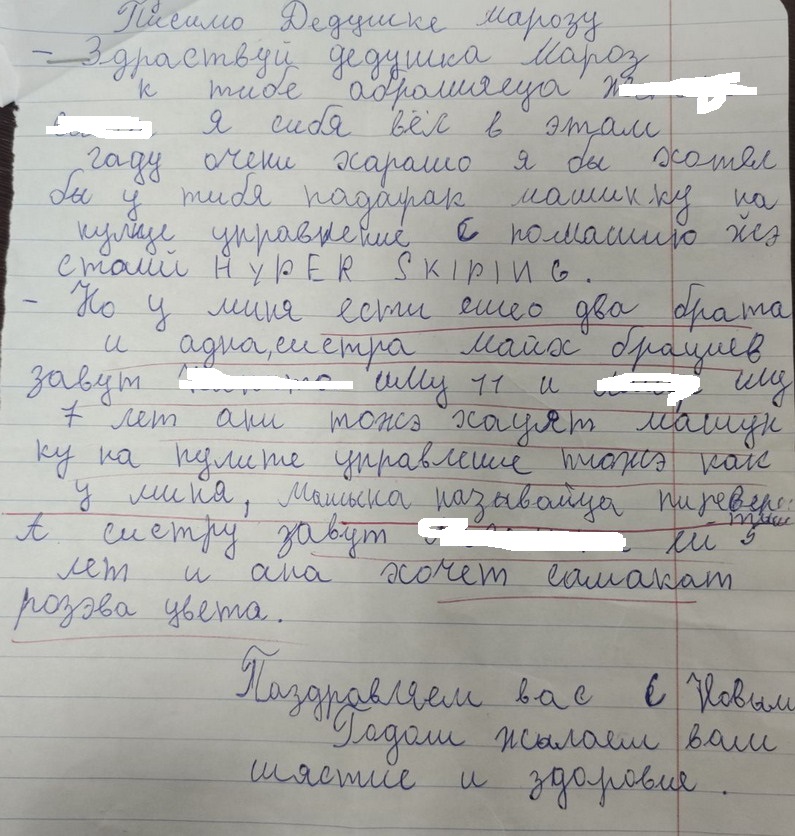 Писимо Дедушке марозу
- Здраствуй дедушка Мароз
к тибе абрашяеца
. Я сибя вёл в этам
гаду очени харашо я бы хотял
бы у тибя падарак машинку на
управление с помащию
H Y P E R S K I P I N G .
- Но у миня ести ешео два брата
и адна, систра майх брациев
завут иму 11 и иму
7 лет ани тожэ хацят машын
ку на пулите управление тожэ как
у миня, Машына называйца
А систру завут ей 5
лет и ана хочет самакат
розэва цвета.
Паздравляем вас с Новым
Годом жылаем вам
шястие и здоровие .